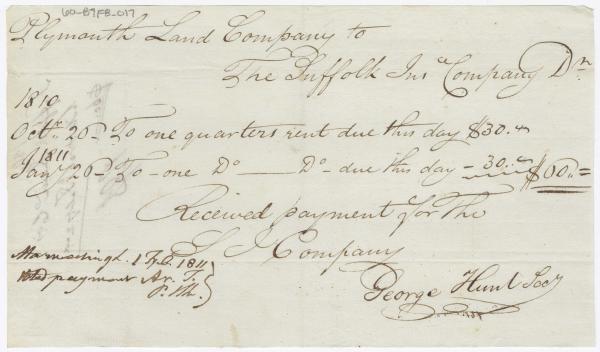 60-B9FB-017
Plymouth Land Company to
The Suffolk Insce Company Dr.
1810
Octr. 26 - To one quarters rent due this day $30.
1811
Jany 26 - To - one Do Do - due this day - 30. $60.
Received payment for The
S I Company
George Hunt Secy
1 Feb. 1811
payment